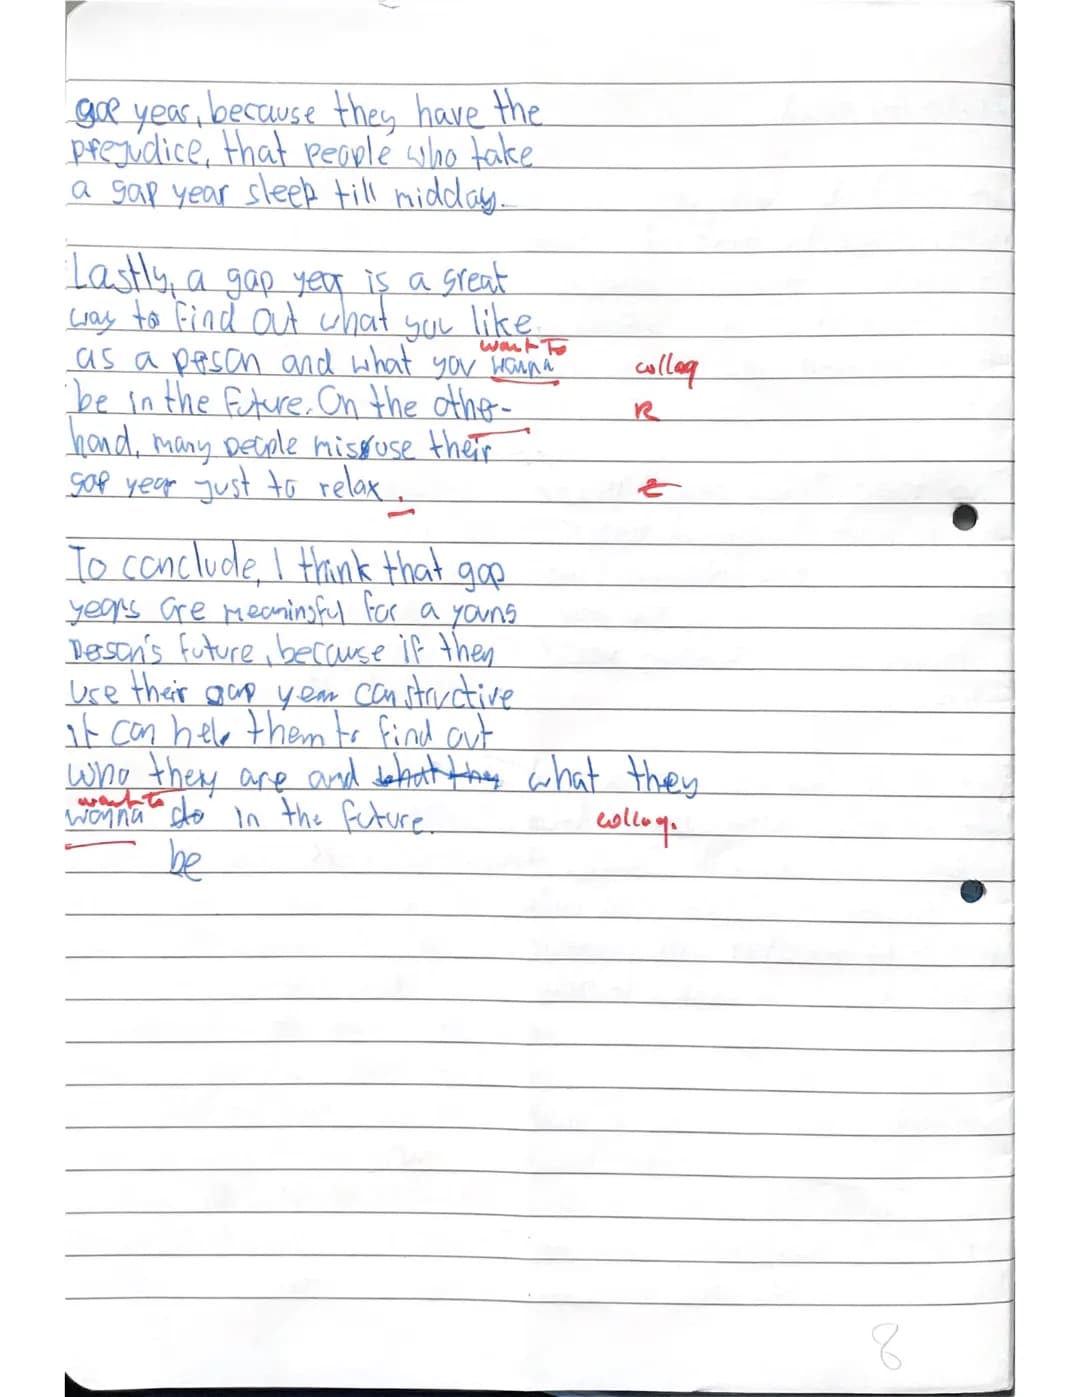 gap year, because they have the
prejudice, that people who take
a gap year sleep till midday.
Lastly, a gap year is a great
way to find out what you like
want to
as a person and what you wanna colloq
be in the future. On the other- R
hand, many people misuse their
gap year just to relax.
To conclude, I think that gap
years are meaningful for a young
person's future, because if they
use their gap year constructive
it can help them to find out
who they are and what they what they
want to
wanna do in the future. colloq.
be
8